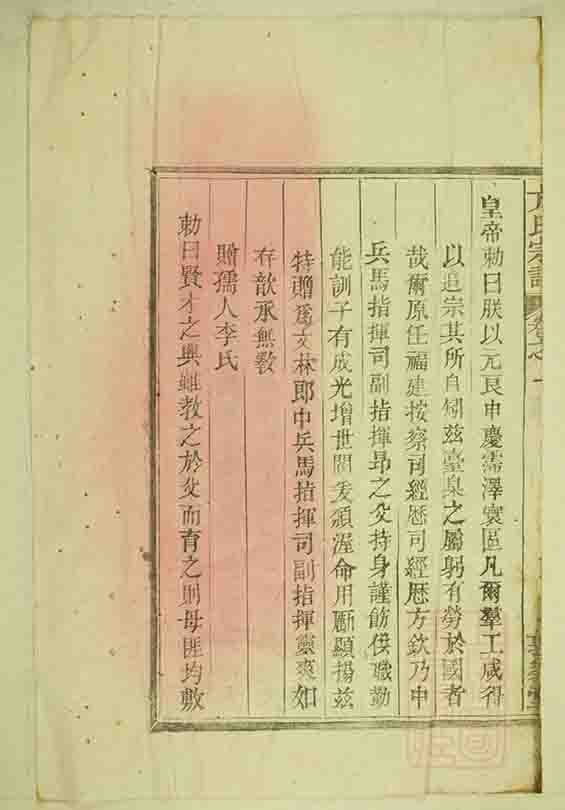 氏宗譜 卷之一
皇帝勅曰朕以元良申慶霈澤寰區凡爾羣工咸得
以追宗其所自矧茲臺臬之屬躬有勞於國者
哉爾原任福建按察司經歷司經歷方欽乃中
兵馬指揮司副指揮昂之父持身謹飭供職勤
能訓子有成光增世閥爰頒渥命用勵顯揚茲
特贈爲文林郎中兵馬指揮司副指揮靈爽如
存歆承無斁
贈孺人李氏
勅曰賢才之興雖教之於父而育之則母匪均敷